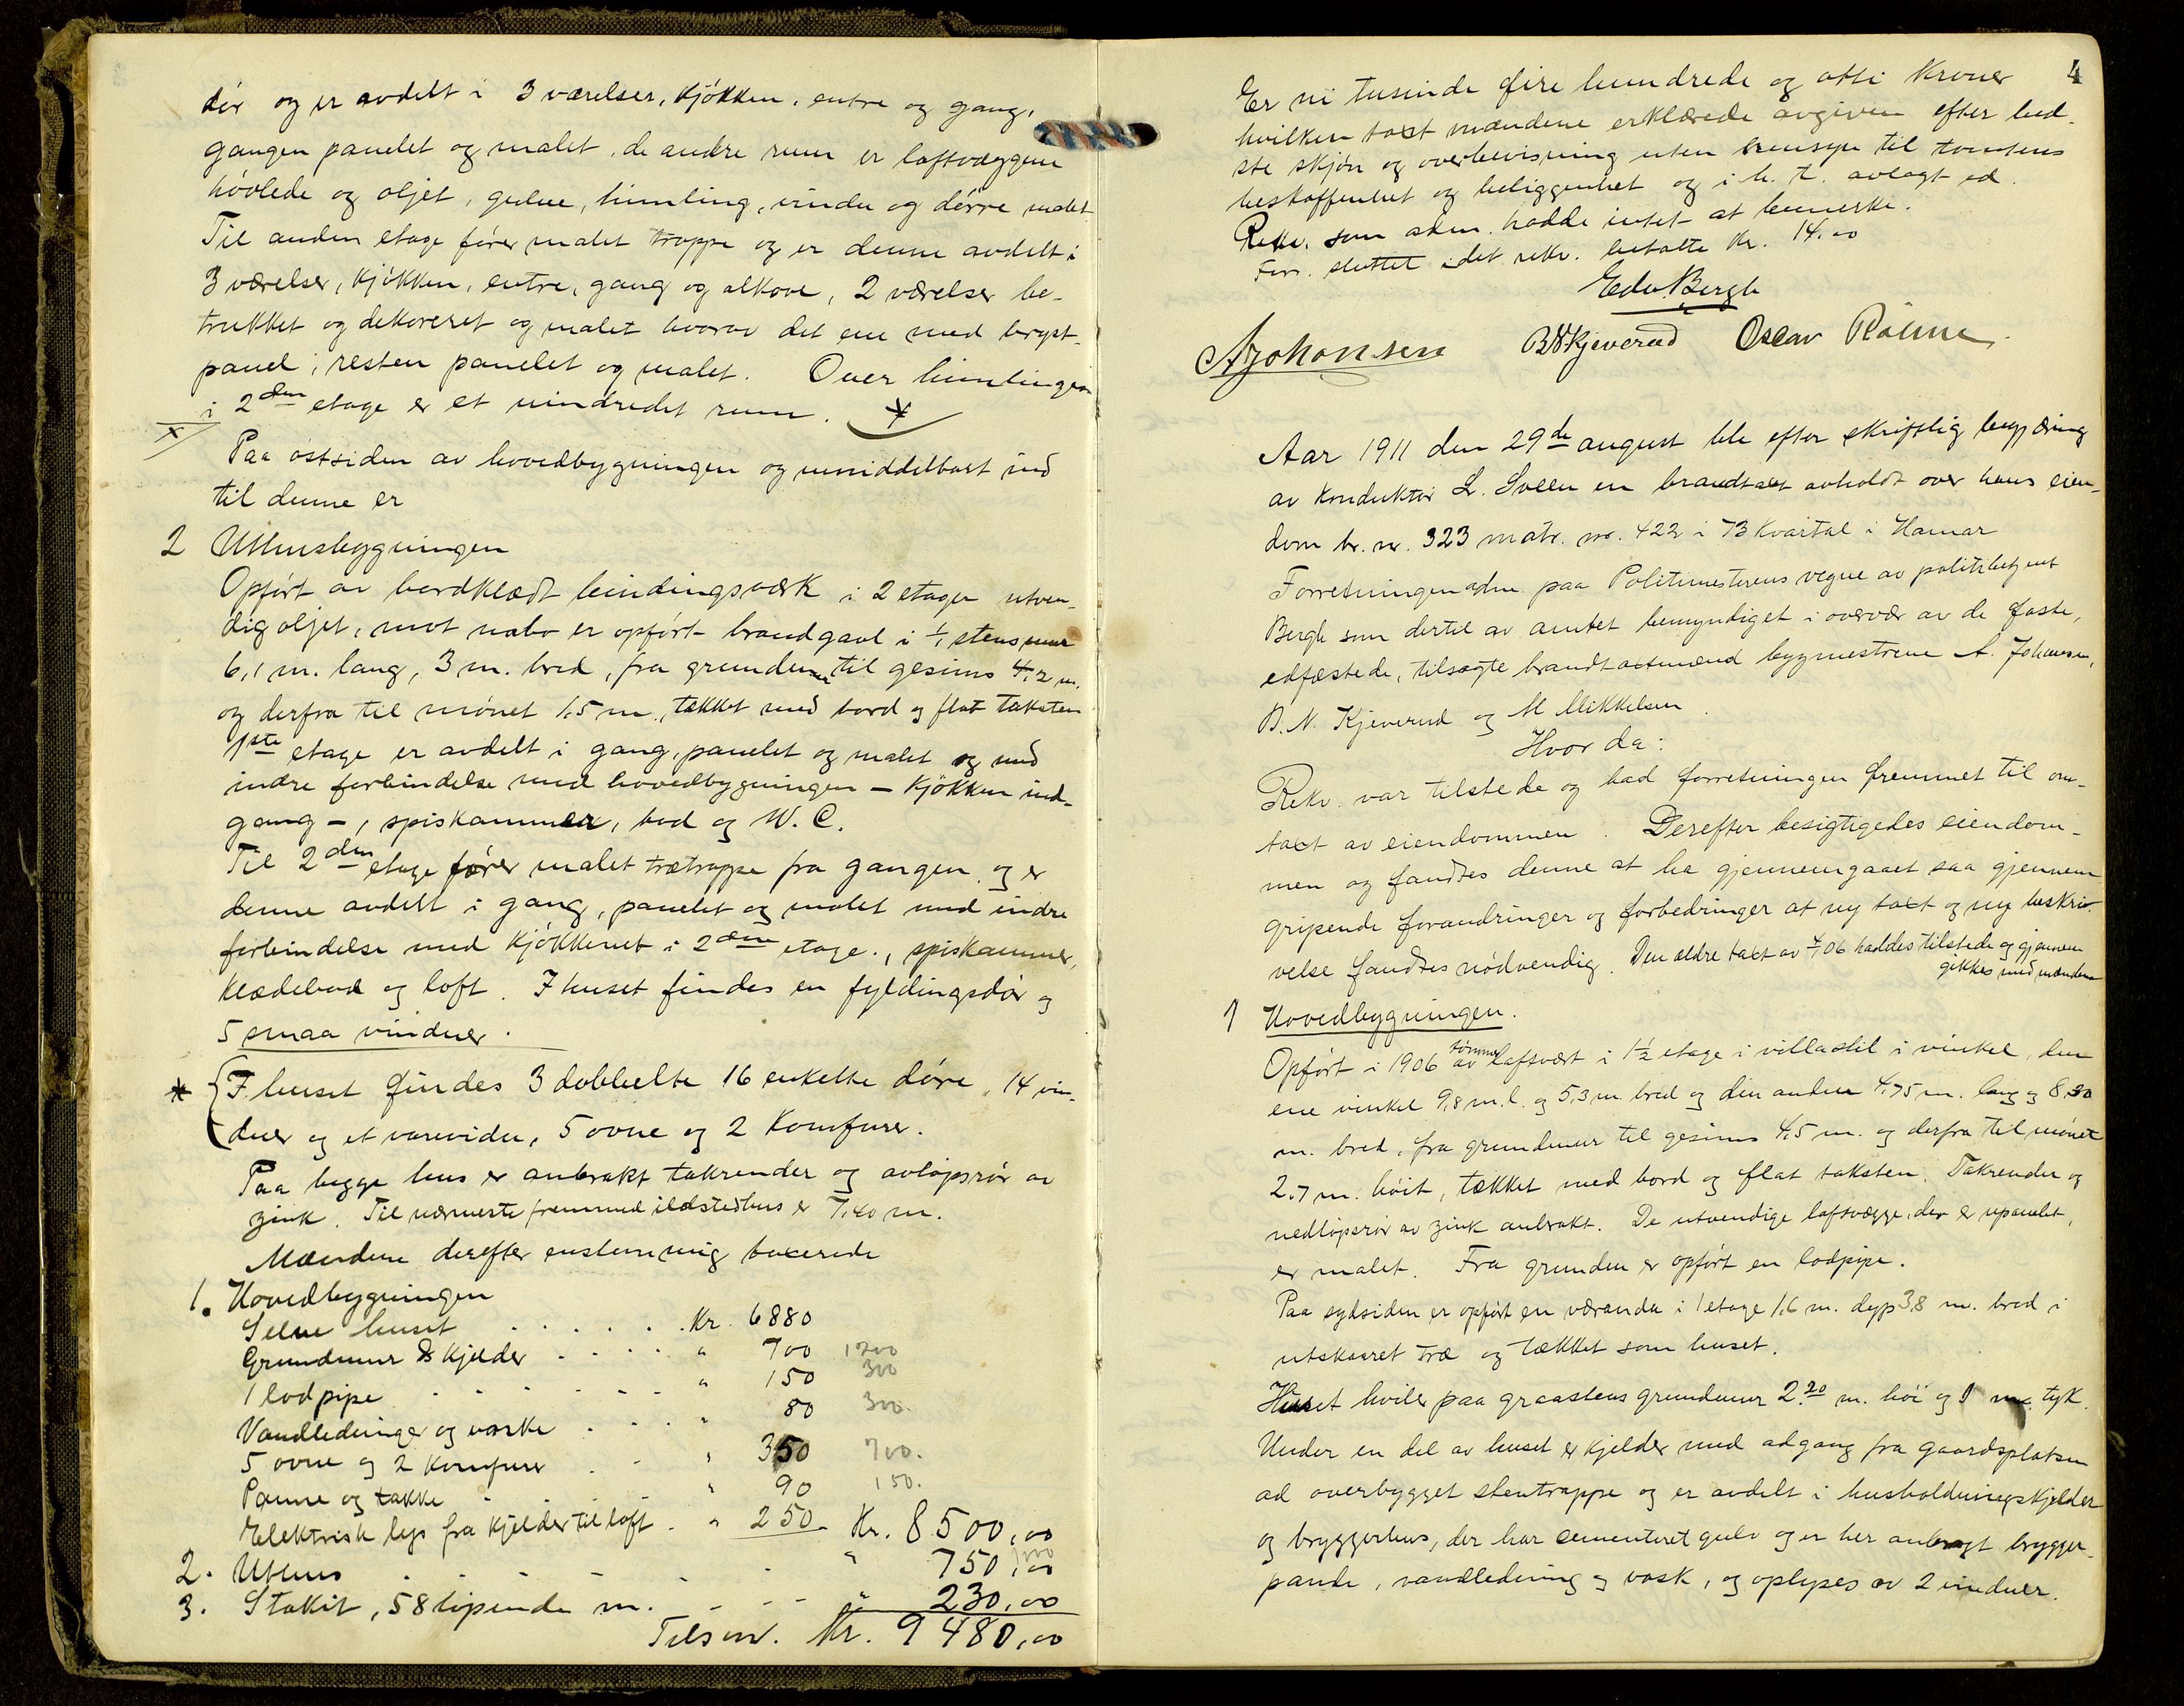 dør og er avdelt i 3 værelser, kjøkken, entre og gang,
gangen panelet og malet, de andre rum er laftvæggene
høvlede og oljet, gulve, himling, vindu og dørre malet
Til anden etage fører malet trappe og er denne avdelt i
3 værelser, kjøkken, entre, gang og alkove, 2 værelser be-
trukket og dekoreret og malet hvorav det ene med bryst-
panel, resten panelet og malet. Over himlingen
i 2den etage er et uindredet rum. *
x
Paa østsiden av hovedbygningen og umiddelbart ind
til denne er
2 Uthusbygningen
Opført av bordklædt bindingsverk i 2 etager utven-
dig oljet, mot nabo er opført brandgavl i 1/1 stens mur
6,1 m. lang, 3 m. bred, fra grunden til gesims 4,2 m.
og derfra til mønet 1,5 m., tækket med bord og flat taksten
1ste etage er avdelt i gang, panelet og malet og med
indre forbindelse med hovedbygningen - kjøkken ind-
gang -, spiskammer, bod og W. C.
Til 2den etage fører malet trætrappe fra gangen og er
denne avdelt i gang, panelet og malet med indre
forbindelse med kjøkkenet i 2den etage., spiskammer,
klædebod og loft. I huset findes en fyldingsdør og
5 smaa vinduer.
* { I huset findes 3 dobbelte 16 enkelte døre, 14 vin-
duer og et varevindu, 5 ovne og 2 komfurer.
Paa begge hus er anbrakt takrender og avløpsrør av
zink. Til nærmeste fremmed ildstedhus er 7,40 m.
Mændene derefter enstemmig taxerede
1. Hovedbygningen
Selve huset . . . . . . Kr. 6880
Grundmur & kjelder . . . . " 700 1200
1 lodpipe . . . . . . " 150 300
Vandledninger og vaske . . . " 80 300.
5 ovne og 2 komfurer . . " 350 700.
Panne og takke . " 90 150.
Elektrisk lys fra kjelder til loft . " 250 Kr. 8500,00
2. Uthus . . . . . . " 750,00 1000
3. Stakit, 58 løpende m. . . . " 230,00
Tilsm. Kr. 9480,00
4
Er ni tusinde fire hundrede og otti kroner
hvilken taxt mændene erklærede avgiven efter bed-
ste skjøn og overbevisning uten hensyn til tomtens
beskaffenhet og beliggenhet og i h. t. avlagt ed.
Rekv. som adm. hadde intet at bemerke.
Forr. sluttet idet rekv. betalte Kr. 14.00
Edv. Bergh
A Johansen B N Kjeverud Oscar Røhne
Aar 1911 den 29de august ble efter skriftlig begjæring
av konduktør L. Sveen en brandtaxt avholdt over hans eien-
dom br. nr. 323 matr. no. 422 i 73 kvartal i Hamar
Forretningen adm. paa Politimesterens vegne av politibetjent
Bergh som dertil av amtet bemyndiget i overvær av de faste,
edfæstede, tilsagte brandtaxtmænd bygmestrene A. Johansen,
B. N. Kjeverud og M Mikkelsen
Hvor da:
Rekv. var tilstede og bad forretningen fremmet til om-
taxt av eiendommen. Derefter besigtigedes eiendom-
men og fandtes denne at ha gjennemgaaet saa gjennem
gripende forandringer og forbedringer at ny taxt og ny beskri-
velse fandtes nødvendig. Den ældre taxt av 06 haddes tilstede og gjennem
gikkes med mændene
1 Hovedbygningen.
Opført i 1906 av tømmer laftverk i 1 1/2 etage i villastil i vinkel, den
ene vinkel 9,8 m. l. og 5,3 m. bred og den anden 4,75 m. lang og 8,30
m. bred, fra grundmur til gesims 4,5 m. og derfra til mønet
2.7 m. høit, tækket med bord og flat taksten. Takrender og
nedløpsrør av zink anbrakt. De utvendige laftvægge, der er upanelet,
er malet. Fra grunden er opført en lodpipe.
Paa sydsiden er opført en veranda i 1 etage 1,6 m. dyp 3,8 m. bred i
utskaaret træ og tækket som huset.
Huset hviler paa graastens grundmur 2.20 m. høi og 1 m. tyk.
Under en del av huset er kjelder med adgang fra gaardsplatsen
ad overbygget stentrappe og er avdelt i husholdningskjelder
og bryggerhus, der har cementeret gulv og er her anbragt brygger-
pande, vandledning og vask, og oplyses av 2 vinduer.